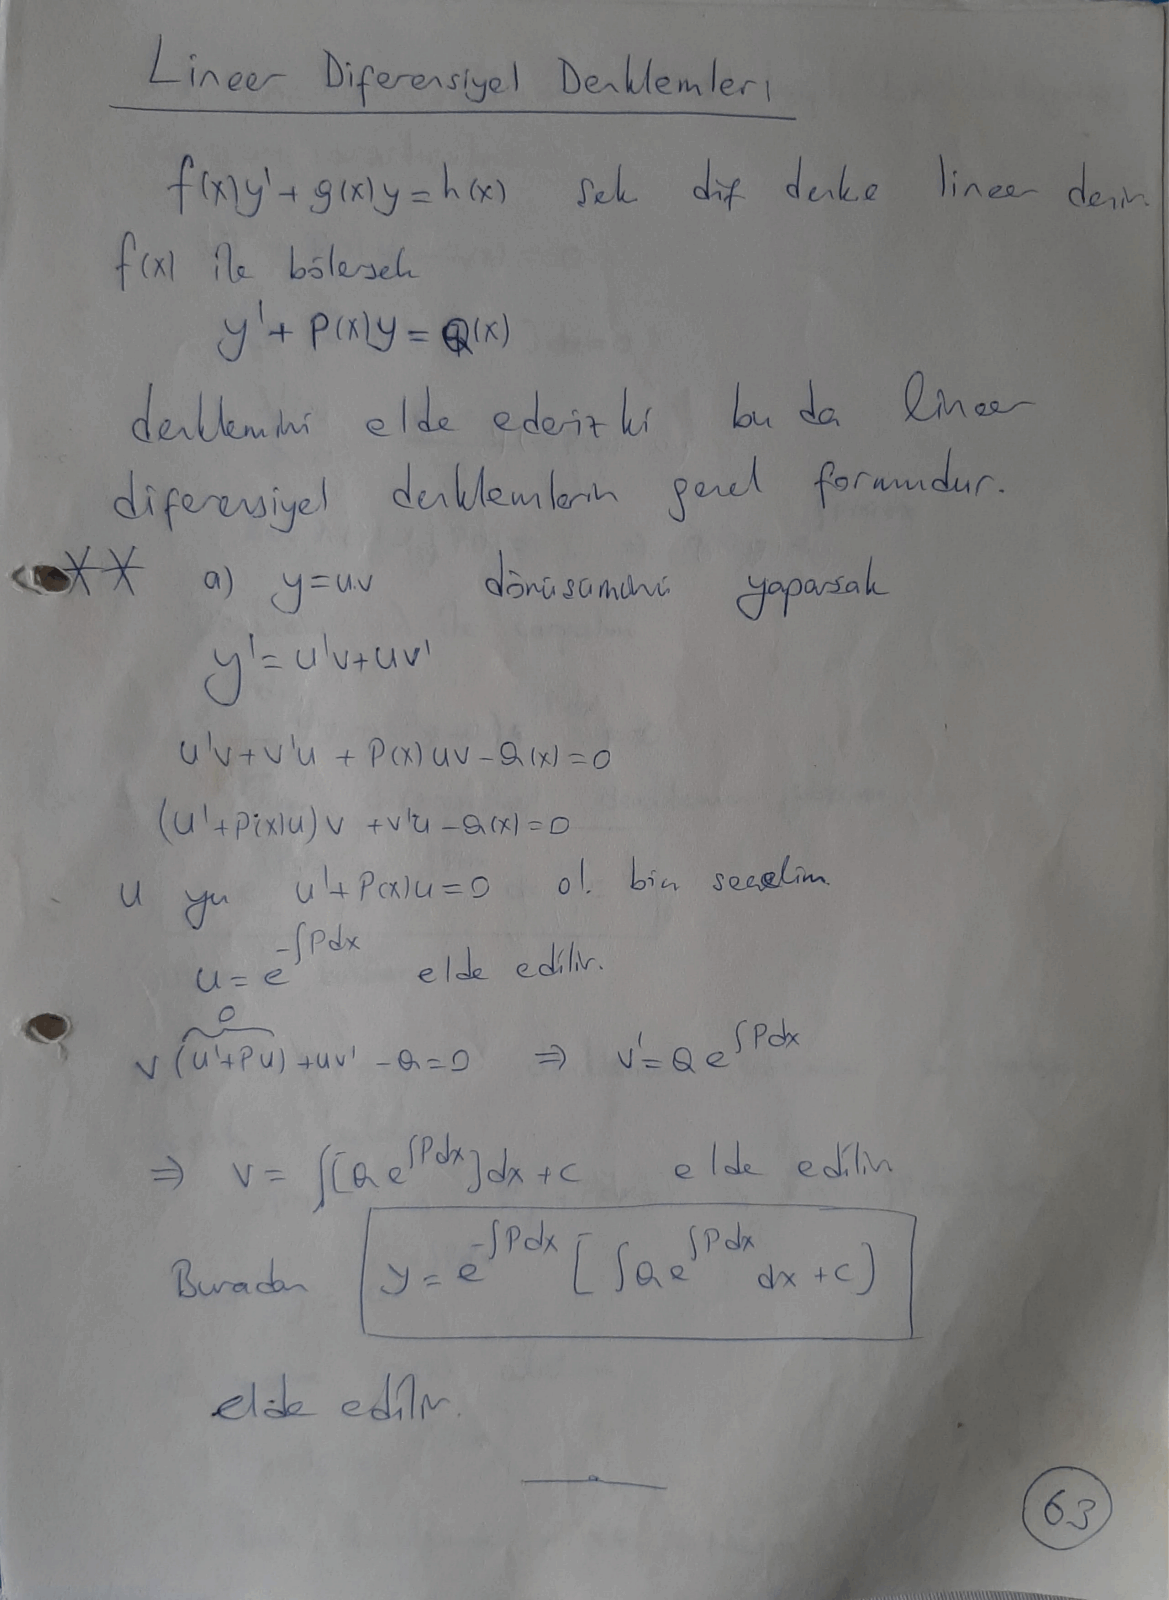 Lineer Diferensiyel Denklemleri
f(x)y' + g(x)y = h(x) şek dif denke lineer denir.
f(x) ile bölersek
y' + P(x)y = Q(x)
denklemini elde ederiz ki bu da lineer
diferensiyel denklemlerin genel formudur.
** a) y=u.v dönüşümünü yaparsak
y' = u'v+uv'
u'v+v'u + P(x)uv-Q(x)=0
(u'+P(x)u)v +v'u -Q(x)=0
u yu u'+P(x)u=0 ol. biçi seçelim.
u = e^{-∫Pdx} elde edilir.
0
v(u'+Pu)+uv' -Q=0 ⇒ v'=Qe^{∫Pdx}
⇒ v = ∫[Qe^{∫Pdx}]dx +c elde edilir
Buradan y = e^{-∫Pdx} [∫Qe^{∫Pdx} dx +c)
elde edilir.
63